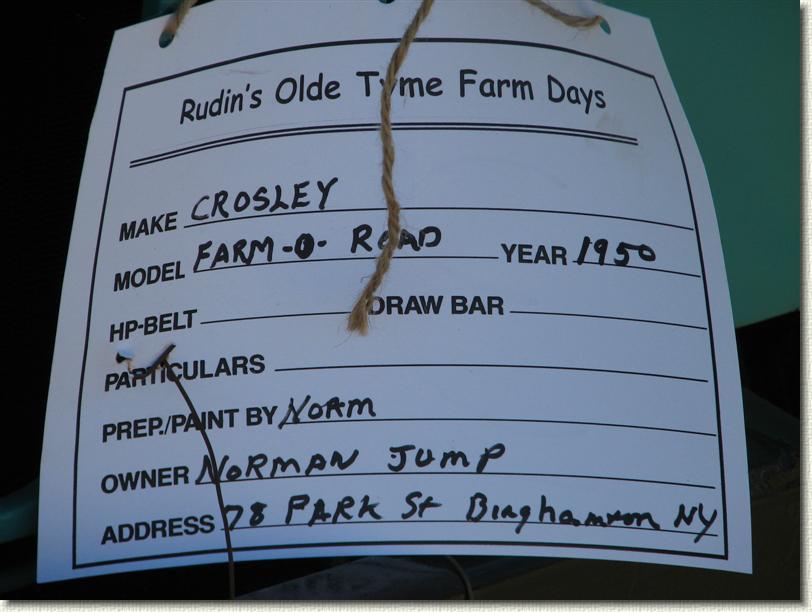 Rudin's Olde Tyme Farm Days
MAKE CROSLEY
MODEL FARM-O-ROAD YEAR 1950
HP-BELT DRAW BAR
PARTICULARS
PREP./PAINT BY NORM
OWNER NORMAN JUMP
ADDRESS 78 PARK St Binghamton NY